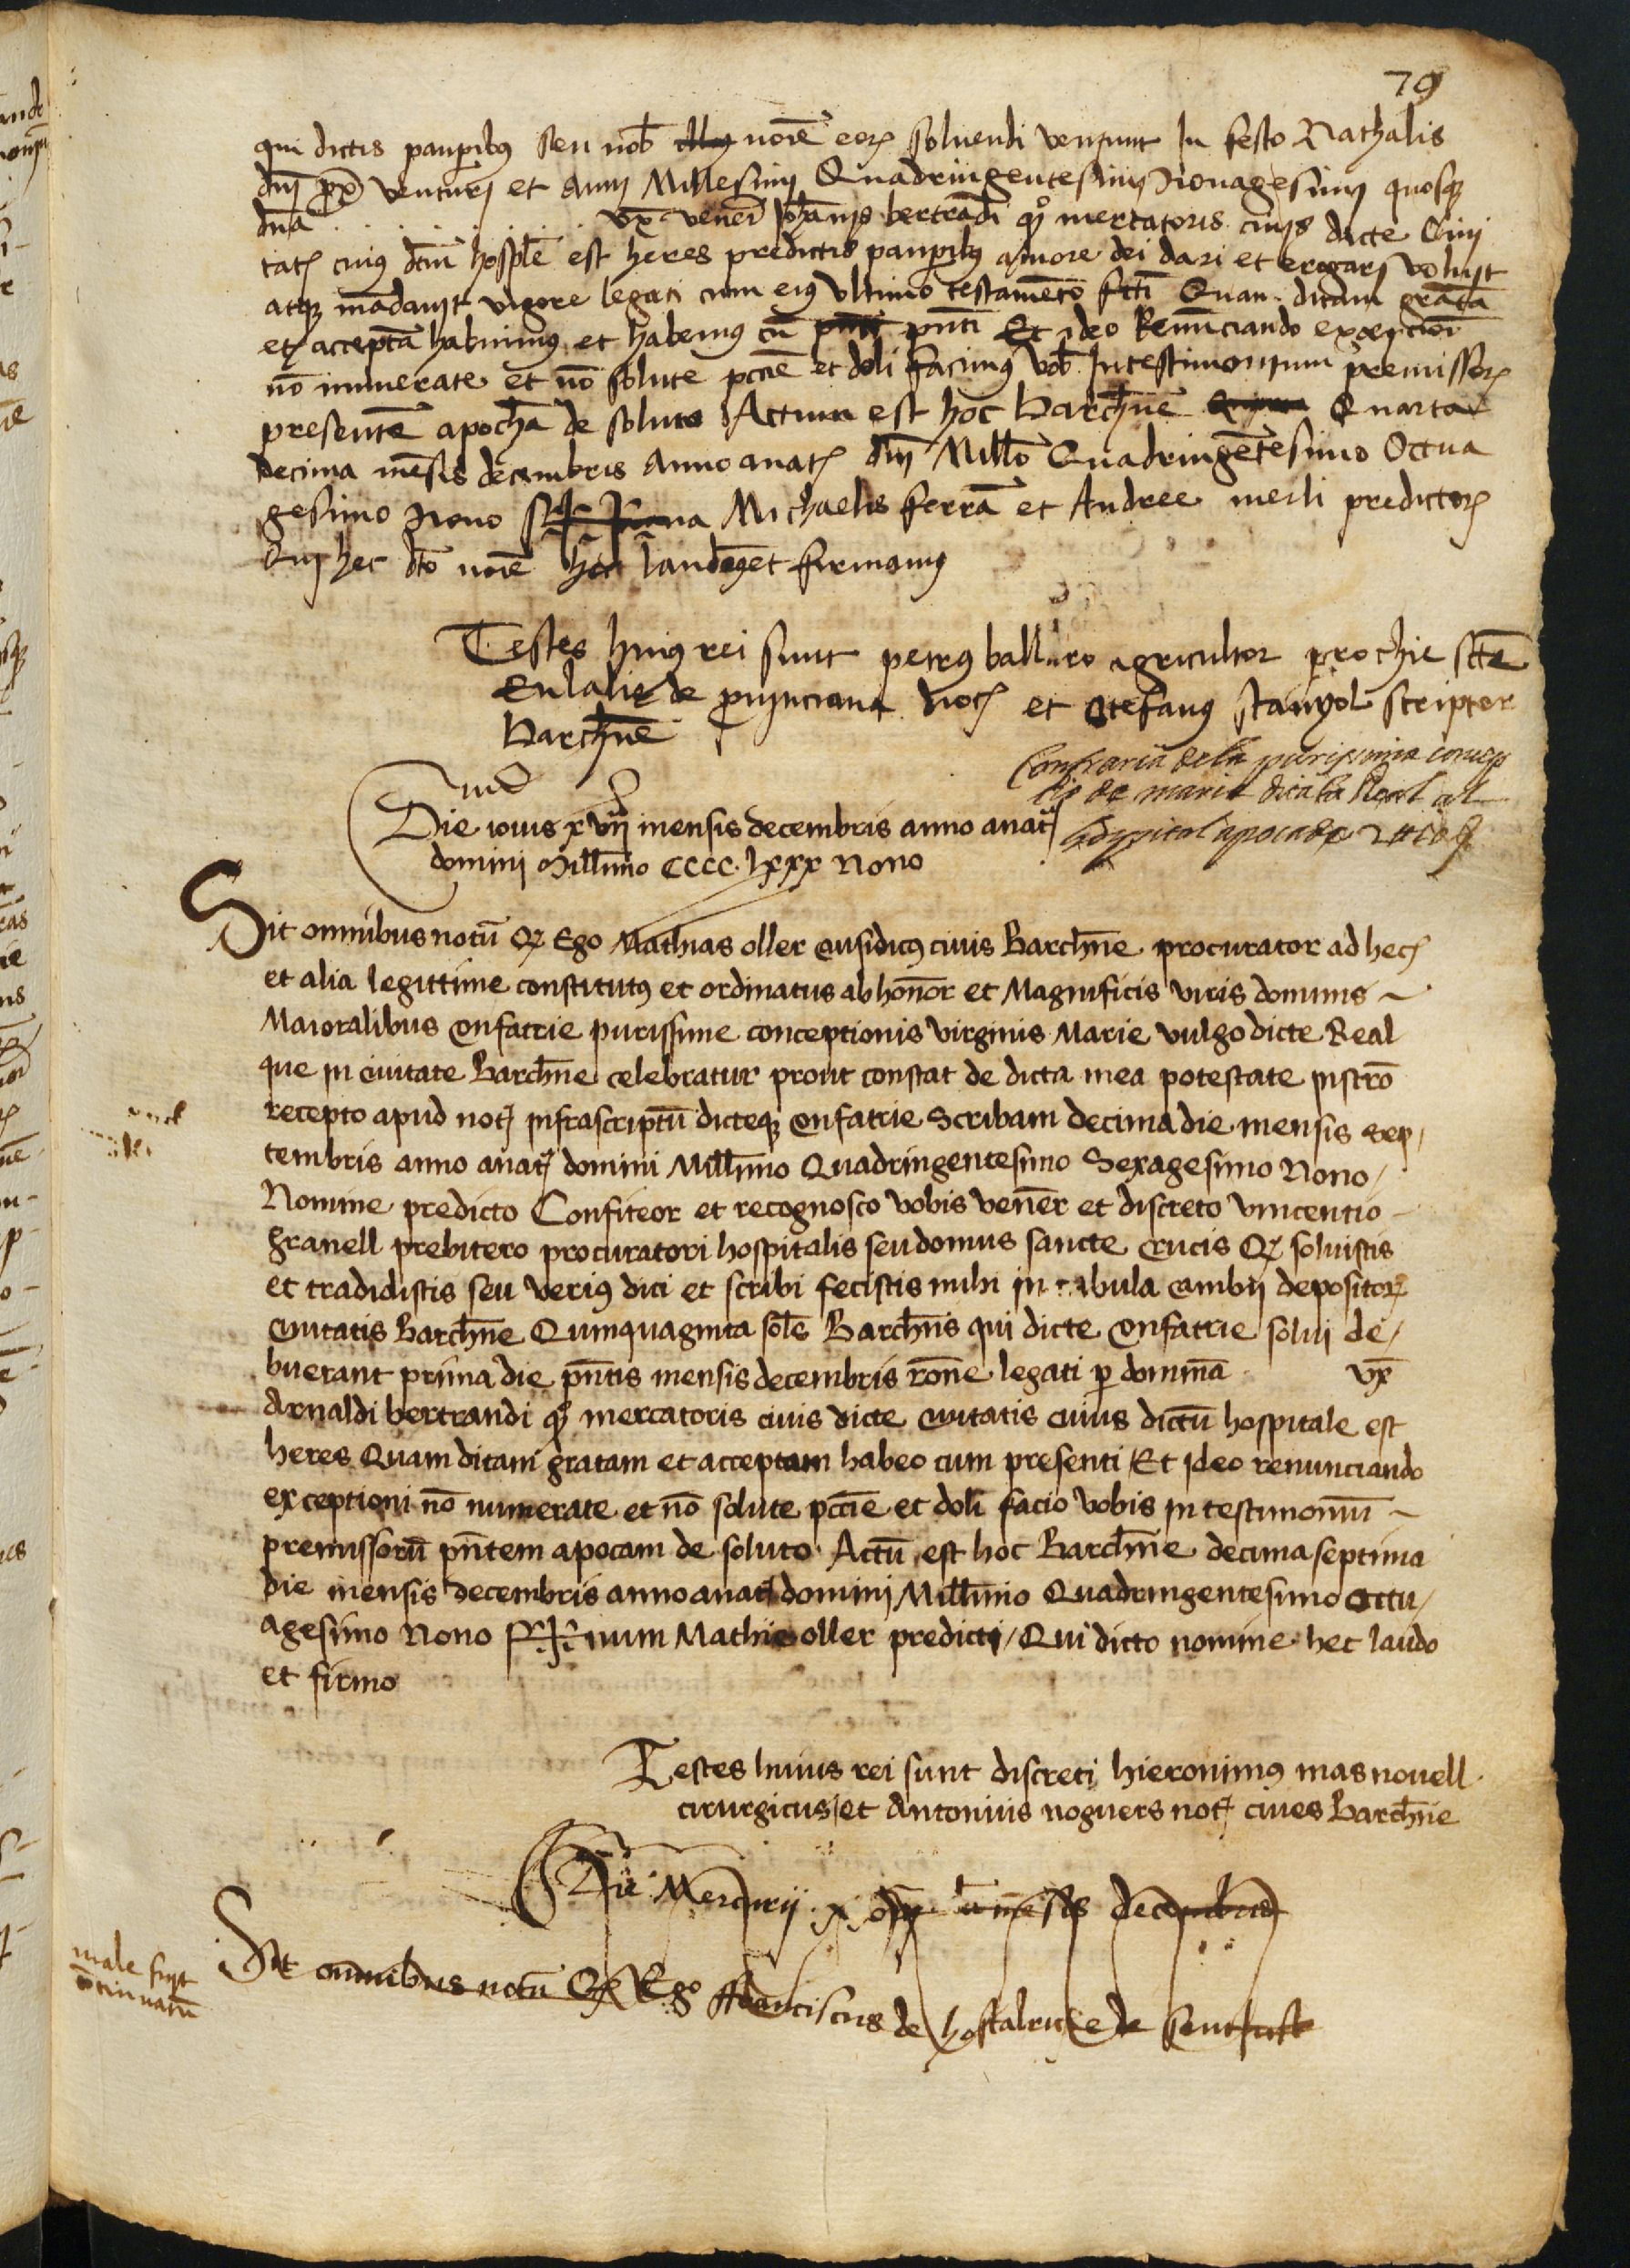 79
qui dictis paupibꝰ seu nob̄ noīe eoꝝ soluendi veniunt In festo Nathalis
dnj px̄ venturj et Anni Millesimj Quadringentesimj Nonagesimj quosqꝫ
dna . . . . . . . vx̄ veneꝝ Johānis bertrandi qº mercatoris ciuis dicte Ciui
tatꝫ cuiꝰ dcm̄ hosple est heres predictis paupibꝰ amore dei dari et erogari voluit
atqꝫ mādauit vigore legati cum eiꝰ vltimo testamēto fcti Quan. ditam grātā
et acceptā habuimꝰ et habemꝰ cū pn̄ti Et ideo Renunciando excepcioī
nō numerate et nō solute pccīe et doli facimꝰ vob̄ In testimonium premissoꝝ
presentē apochā de soluto Actum est hoc Barchn̄e Quarta
decima mēsis decembris Anno anatꝫ dnj Millo Quadringētesimo Octua
gesimo Nono Sig✝na Michaelis ferrā et Andree merli predictoꝝ
Qui hec dc̄o noīe laudamꝰ et firmamꝰ
Testes huiꝰ rei sunt petrꝰ ballaro agricultor prochie scte
Eulalie de prouinciana notꝫ et Stefanꝰ stanyol scriptor
Barchn̄e
Confraria dela purissima concep
tio de maria dita la Real al
hospital apoca de
Die iouis xvij mensis decembris anno anatꝫ
domini Millimo CCCC. lxxx Nono
Sit omnibus notū Qꝫ Ego Mathias oller causidicꝰ ciuis Barchn̄e procurator ad hec
et alia legittime constitutꝰ et ordinatus ab honor et Magnificis viris dominis
Maioralibus confatrie purissime conceptionis virginis Marie vulgo dicte Real
que in ciuitate Barchn̄e celebratur prout constat de dicta mea potestate instrō
recepto apud notꝫ infrascriptū dicteqꝫ confatrie Scribam decima die mensis sep/
tembris anno anatꝫ domini Millimo Quadringentesimo Sexagesimo Nono/
Nomine predicto Confiteor et recognosco vobis vener et discreto vincentio
granell prebitero procuratori hospitalis seu domus sancte crucis Qꝫ soluistis
et tradidistis seu veriꝰ dici et scribi fecistis mihi in tabula cambij depositoꝝ
ciuitatis Barchn̄e Quinquaginta sol̄s Barchn̄is qui dicte confatrie solui de/
buerant prima die pn̄tis mensis decembris rōne legati p̄ dominā vx̄
Arnaldi bertrandi qº mercatoris ciuis dicte ciuitatis cuius dictū hospitale est
heres Quam ditam gratam et acceptam habeo cum presenti Et ideo renunciando
exceptioni nō numerate et nō solute pccīe et doli facio vobis in testimoniū
premissorū pn̄tem apocam de soluto Actū est hoc Barchn̄e decima septima
die mensis decembris anno anatꝫ domini Millimo Quadringentesimo octu/
agesimo Nono Sig✝num Mathie oller predicti/ Qui dicto nomine hec laudo
et firmo
Testes huius rei sunt discreti hieronimꝰ masnouell
cirurgicus et Antonius noguers notꝫ ciues Barchn̄e
Die Mercurij x mēsis decembris
male fuit
cōtinuatū
Sit omnibus notū Qꝫ Ego ffranciscus de hostalrich de